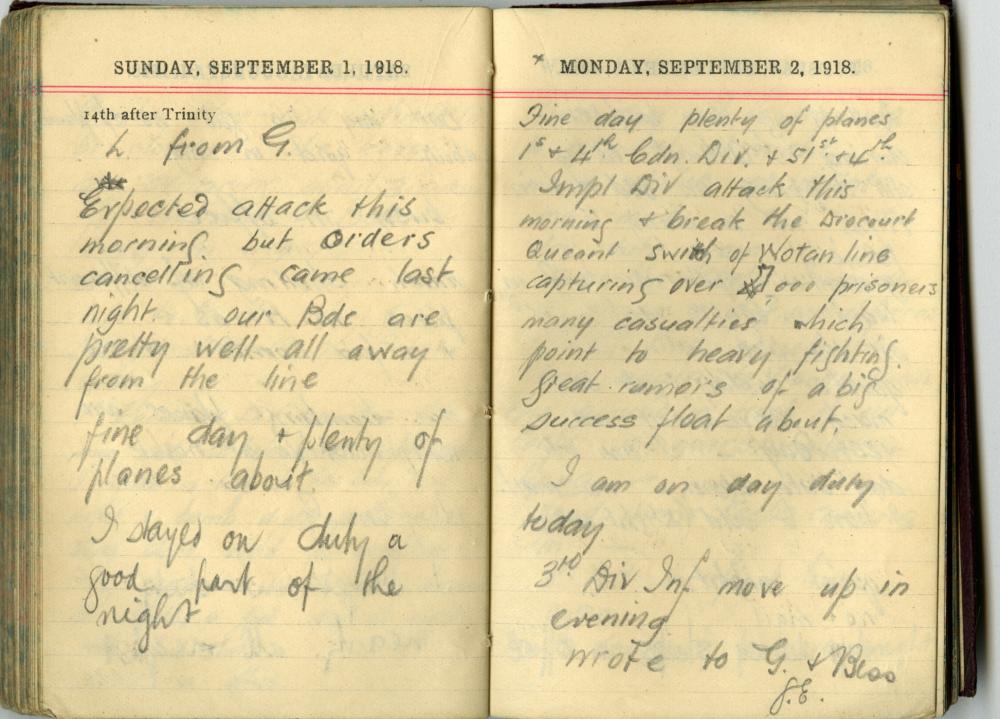 SUNDAY, SEPTEMBER 1, 1918.
14th after Trinity
L. from G.
Expected attack this
morning but orders
cancelling came last
night. our Bde are
pretty well all away
from the line
fine day + plenty of
planes about.
I stayed on duty a
good part of the
night
MONDAY, SEPTEMBER 2, 1918.
Fine day plenty of planes
1st + 4th Cdn. Div. + 51st + 4th
Impl Div attack this
morning + break the Drocourt
Queant switch of Wotan line
capturing over 5,000 prisoners
many casualties which
point to heavy fighting.
great rumors of a big
success float about.
I am on day duty
today
3rd Div Inf move up in
evening
wrote to G. + Bess